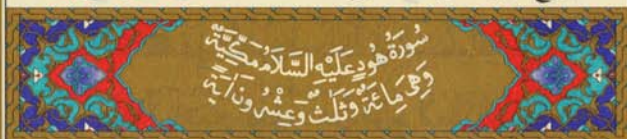 سُورَةُ هُودٍ عَلَيْهِ السَّلَامُ مَكِّيَّةٌ
وَهِيَ مِائَةٌ وَثَلٰثٌ وَعِشْرُونَ اٰيَةً